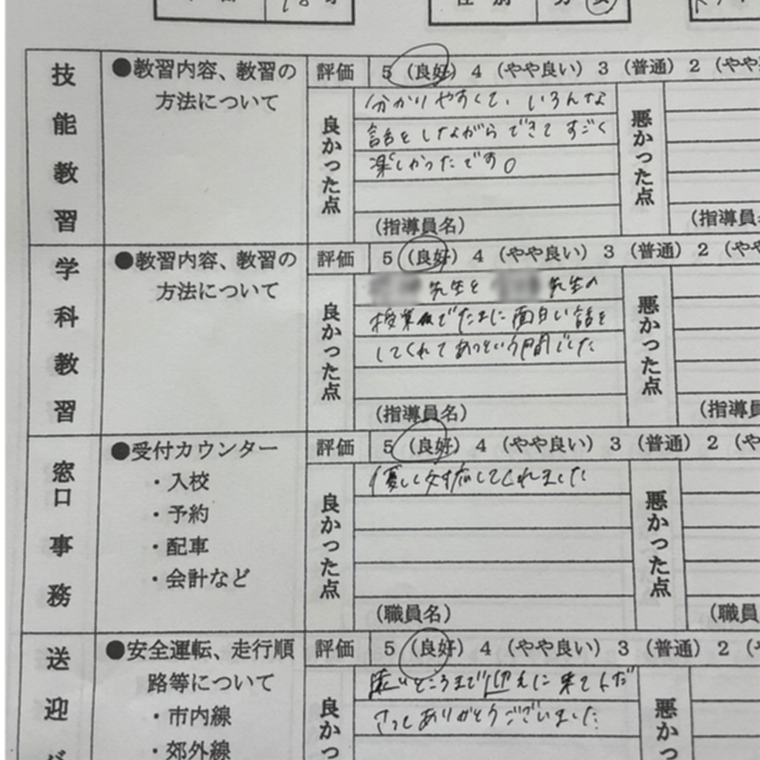 18才
性別
女
技能教習
●教習内容、教習の
方法について
評価 5 (良好) 4 (やや良い) 3 (普通) 2 (やや
良かった点
分かりやすくて、いろんな
話をしながらできてすごく
楽しかったです。
(指導員名)
悪かった点
(指導員
学科教習
●教習内容、教習の
方法について
評価 5 (良好) 4 (やや良い) 3 (普通) 2 (やや
良かった点
先生と 先生の
授業でたまに面白い話を
してくれてあっという間でした
(指導員名)
悪かった点
(指導員
窓口事務
●受付カウンター
・入校
・予約
・配車
・会計など
評価 5 (良好) 4 (やや良い) 3 (普通) 2 (や
良かった点
優しく対応してくれました
(職員名)
悪かった点
(職員
送迎バ
●安全運転、走行順
路等について
・市内線
・郊外線
評価 5 (良好) 4 (やや良い) 3 (普通) 2 (
良かっ
遠いところまで迎えに来てくだ
さってありがとうございました
悪かっ